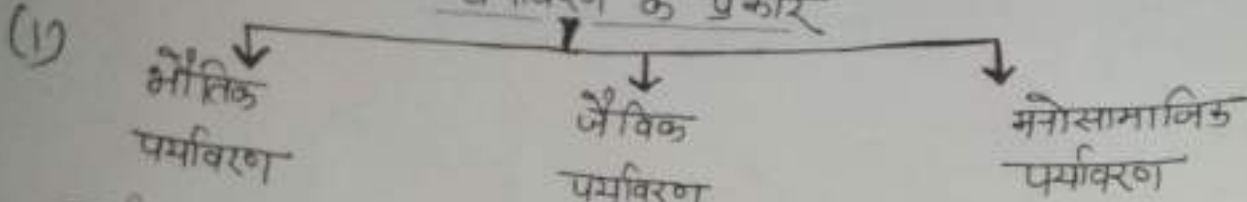 के प्रकार
(1)
भौतिक
पर्यावरण
जैविक
पर्यावरण
मनोसामाजिक
पर्यावरण